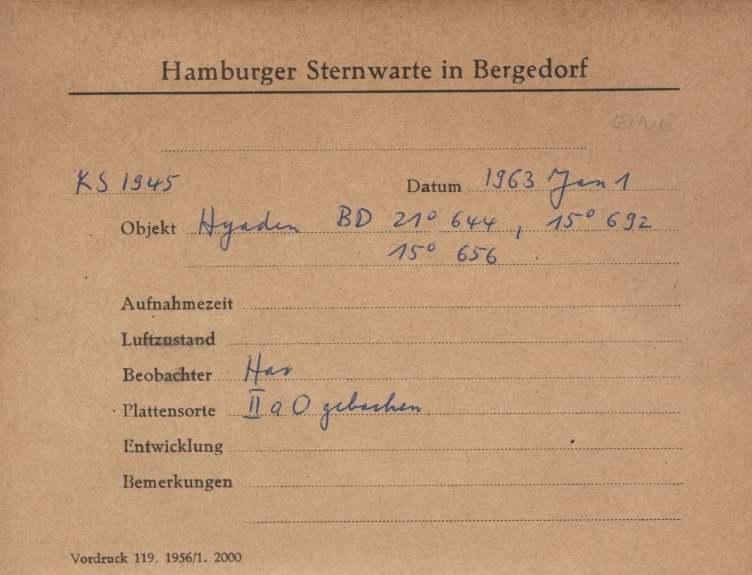 Hamburger Sternwarte in Bergedorf
EINE
KS 1945 Datum 1963 Jan 1
Objekt Hyaden BD 21° 644, 15° 692
15° 656
Aufnahmezeit
Luftzustand
Beobachter Har
Plattensorte II a O gebacken
Entwicklung
Bemerkungen
Vordruck 119. 1956/1. 2000